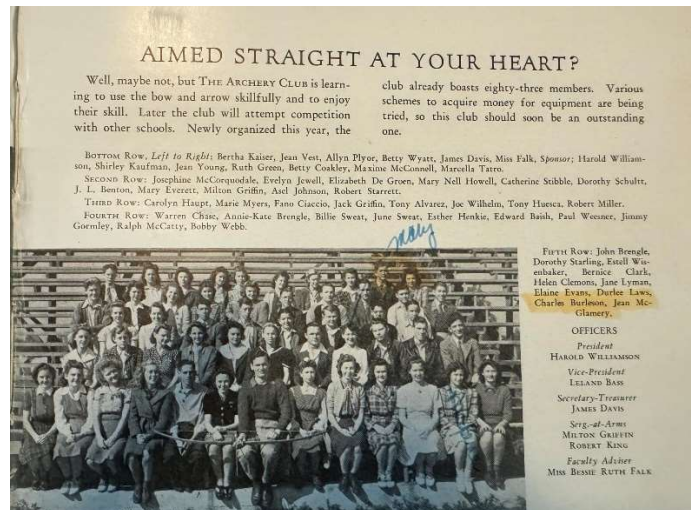 AIMED STRAIGHT AT YOUR HEART?
Well, maybe not, but THE ARCHERY CLUB is learn-
ing to use the bow and arrow skillfully and to enjoy
their skill. Later the club will attempt competition
with other schools. Newly organized this year, the
club already boasts eighty-three members. Various
schemes to acquire money for equipment are being
tried, so this club should soon be an outstanding
one.
BOTTOM ROW, Left to Right: Bertha Kaiser, Jean Vest, Allyn Plyor, Betty Wyatt, James Davis, Miss Falk, Sponsor; Harold William-
son, Shirley Kaufman, Jean Young, Ruth Green, Betty Coakley, Maxime McConnell, Marcella Tatro.
SECOND ROW: Josephine McCorquodale, Evelyn Jewell, Elizabeth De Groen, Mary Nell Howell, Catherine Stibble, Dorothy Schultt,
J. L. Benton, Mary Everett, Milton Griffin, Asel Johnson, Robert Starrett.
THIRD ROW: Carolyn Haupt, Marie Myers, Fano Ciaccio, Jack Griffin, Tony Alvarez, Joe Wilhelm, Tony Huesca, Robert Miller.
FOURTH ROW: Warren Chase, Annie-Kate Brengle, Billie Sweat, June Sweat, Esther Henkie, Edward Baish, Paul Wesner, Jimmy
Gormley, Ralph McCatty, Bobby Webb.
Mary
FIFTH ROW: John Brengle,
Dorothy Starling, Estell Wis-
enbaker, Bernice Clark,
Helen Clemons, Jane Lyman,
Elaine Evans, Durlee Laws,
Charles Burleson, Jean Mc-
Glamery.
OFFICERS
President
HAROLD WILLIAMSON
Vice-President
LELAND BASS
Secretary-Treasurer
JAMES DAVIS
Serg.-at-Arms
MILTON GRIFFIN
ROBERT KING
Faculty Adviser
MISS BESSIE RUTH FALK